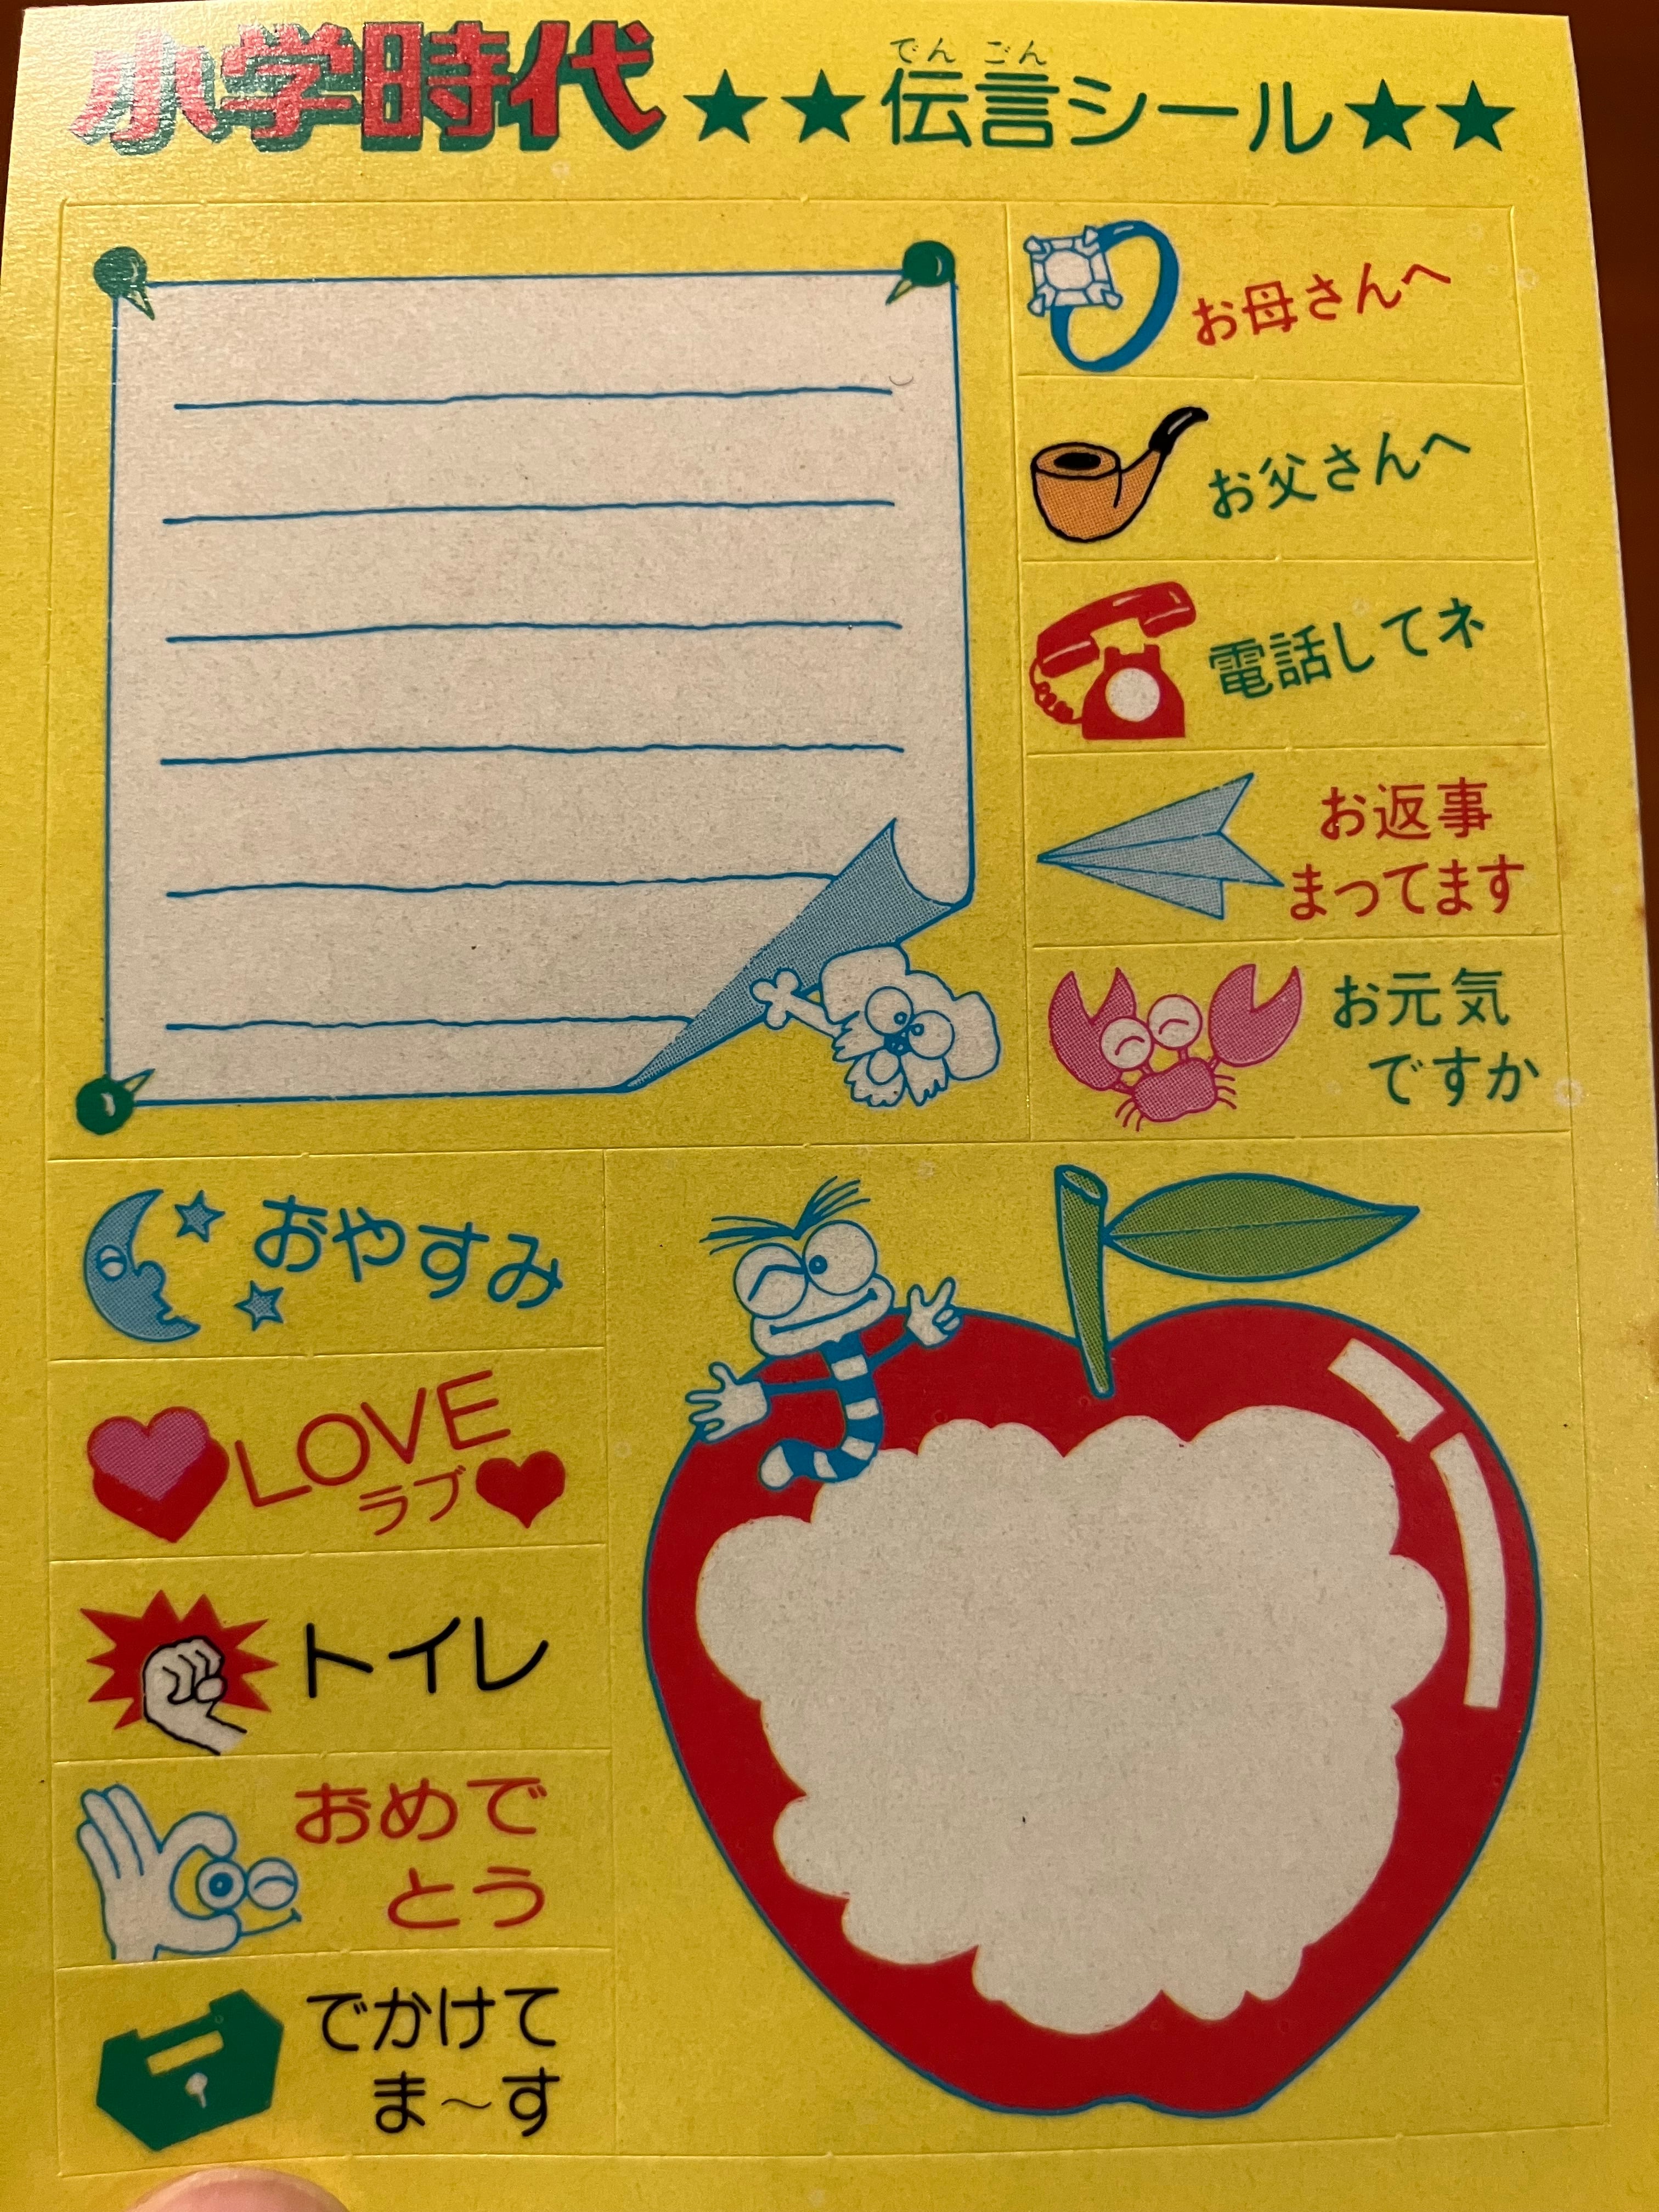 小学時代 ★★伝言シール★★
でんごん
お母さんへ
お父さんへ
電話してネ
お返事
まってます
お元気
ですか
おやすみ
LOVE
ラブ
トイレ
おめで
とう
でかけて
ま〜す